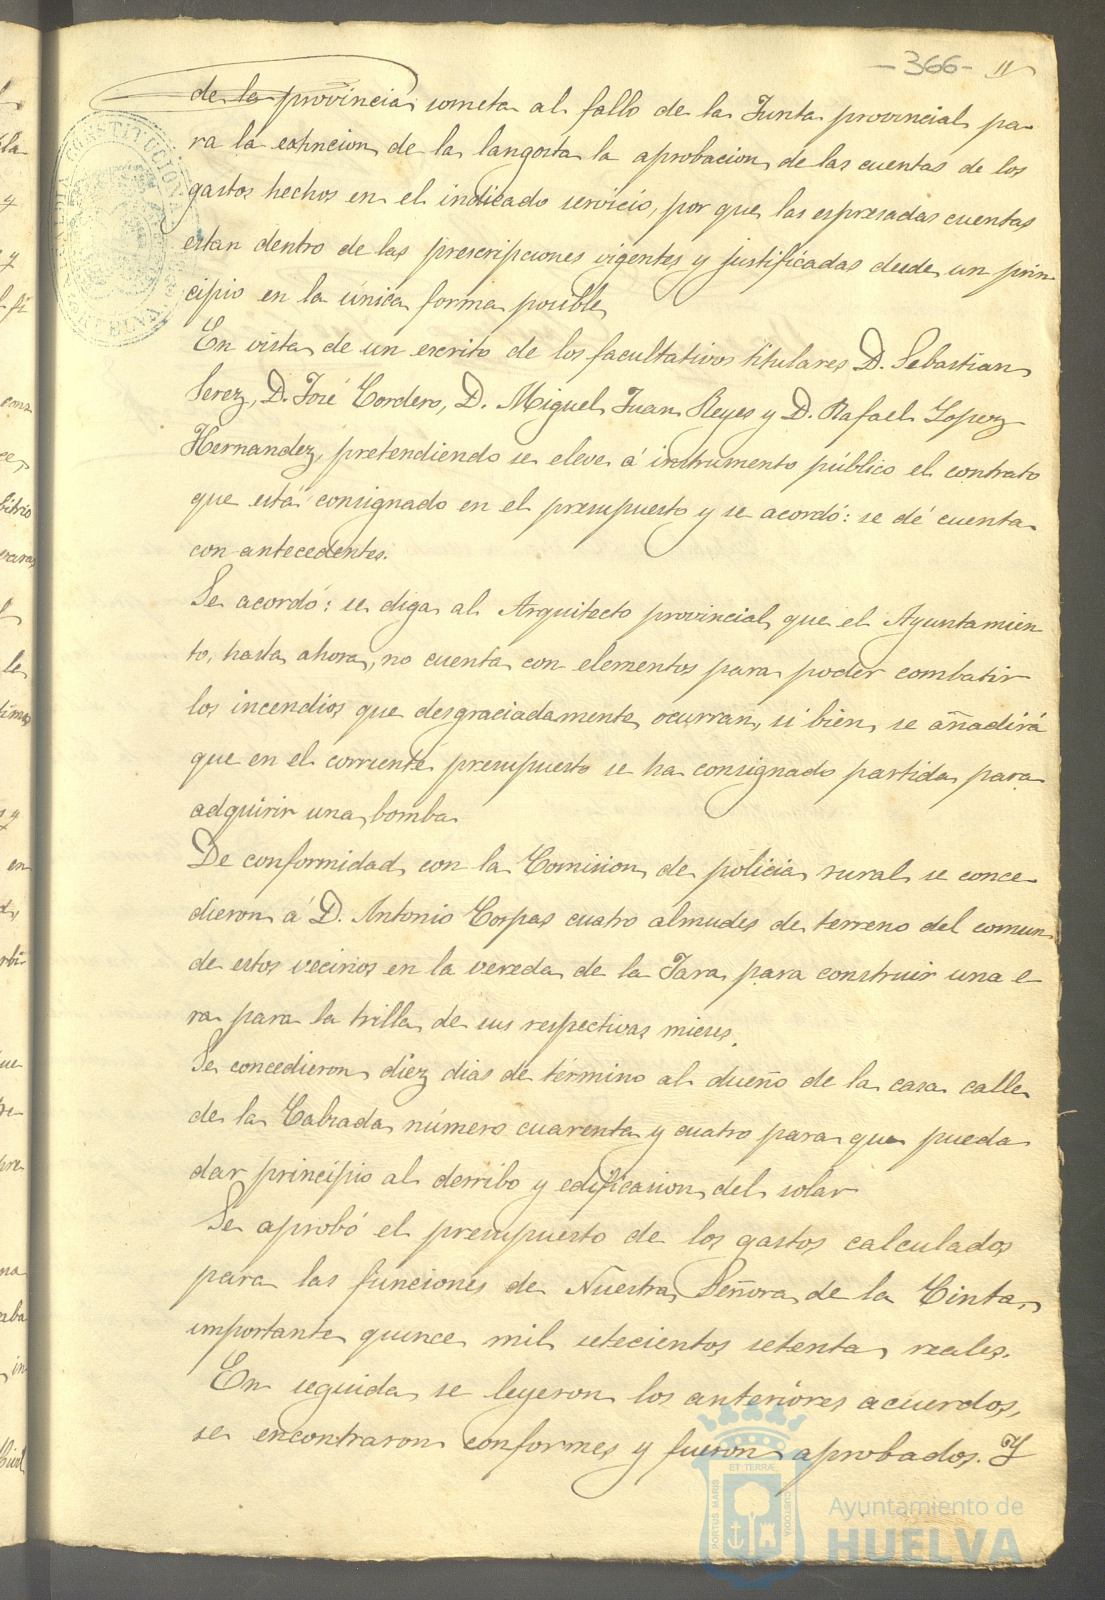 -366- 11
de la provincia someta al fallo de la Junta provincial pa-
ra la extincion de la langosta la aprobacion de las cuentas de los
gastos hechos en el indicado servicio, por que las espresadas cuentas
estan dentro de las prescripciones vigentes y justificadas desde un prin-
cipio en la única forma posible
En vista de un escrito de los facultativos titulares D. Sebastian
Perez, D. José Cordero, D. Miguel Juan Reyes y D. Rafael Lopez
Hernandez, pretendiendo se eleve á instrumento público el contrato
que está consignado en el presupuesto y se acordó: se dé cuenta
con antecedentes.
Se acordó: se diga al Arquitecto provincial, que el Ayuntamien-
to, hasta ahora, no cuenta con elementos para poder combatir
los incendios que desgraciadamente ocurran, si bien, se añadirá
que en el corriente presupuesto se ha consignado partida para
adquirir una bomba.
De conformidad con la Comision de policia rural se conce-
dieron á D. Antonio Corpas cuatro almudes de terreno del comun
de estos vecinos en la vereda de la Jara, para construir una e-
ra para la trilla de sus respectivas mieses.
Se concedieron diez dias de término al dueño de la casa calle
de la Calzada número cuarenta y cuatro para que pueda
dar principio al derribo y edificacion del solar
Se aprobó el presupuesto de los gastos calculados
para las funciones de Nuestra Señora de la Cinta,
importante quince mil setecientos setenta reales.
En seguida se leyeron los anteriores acuerdos,
se encontraron conformes y fueron aprobados. Y
PORTUS MARIS ET TERRÆ CUSTODIA
Ayuntamiento de
HUELVA